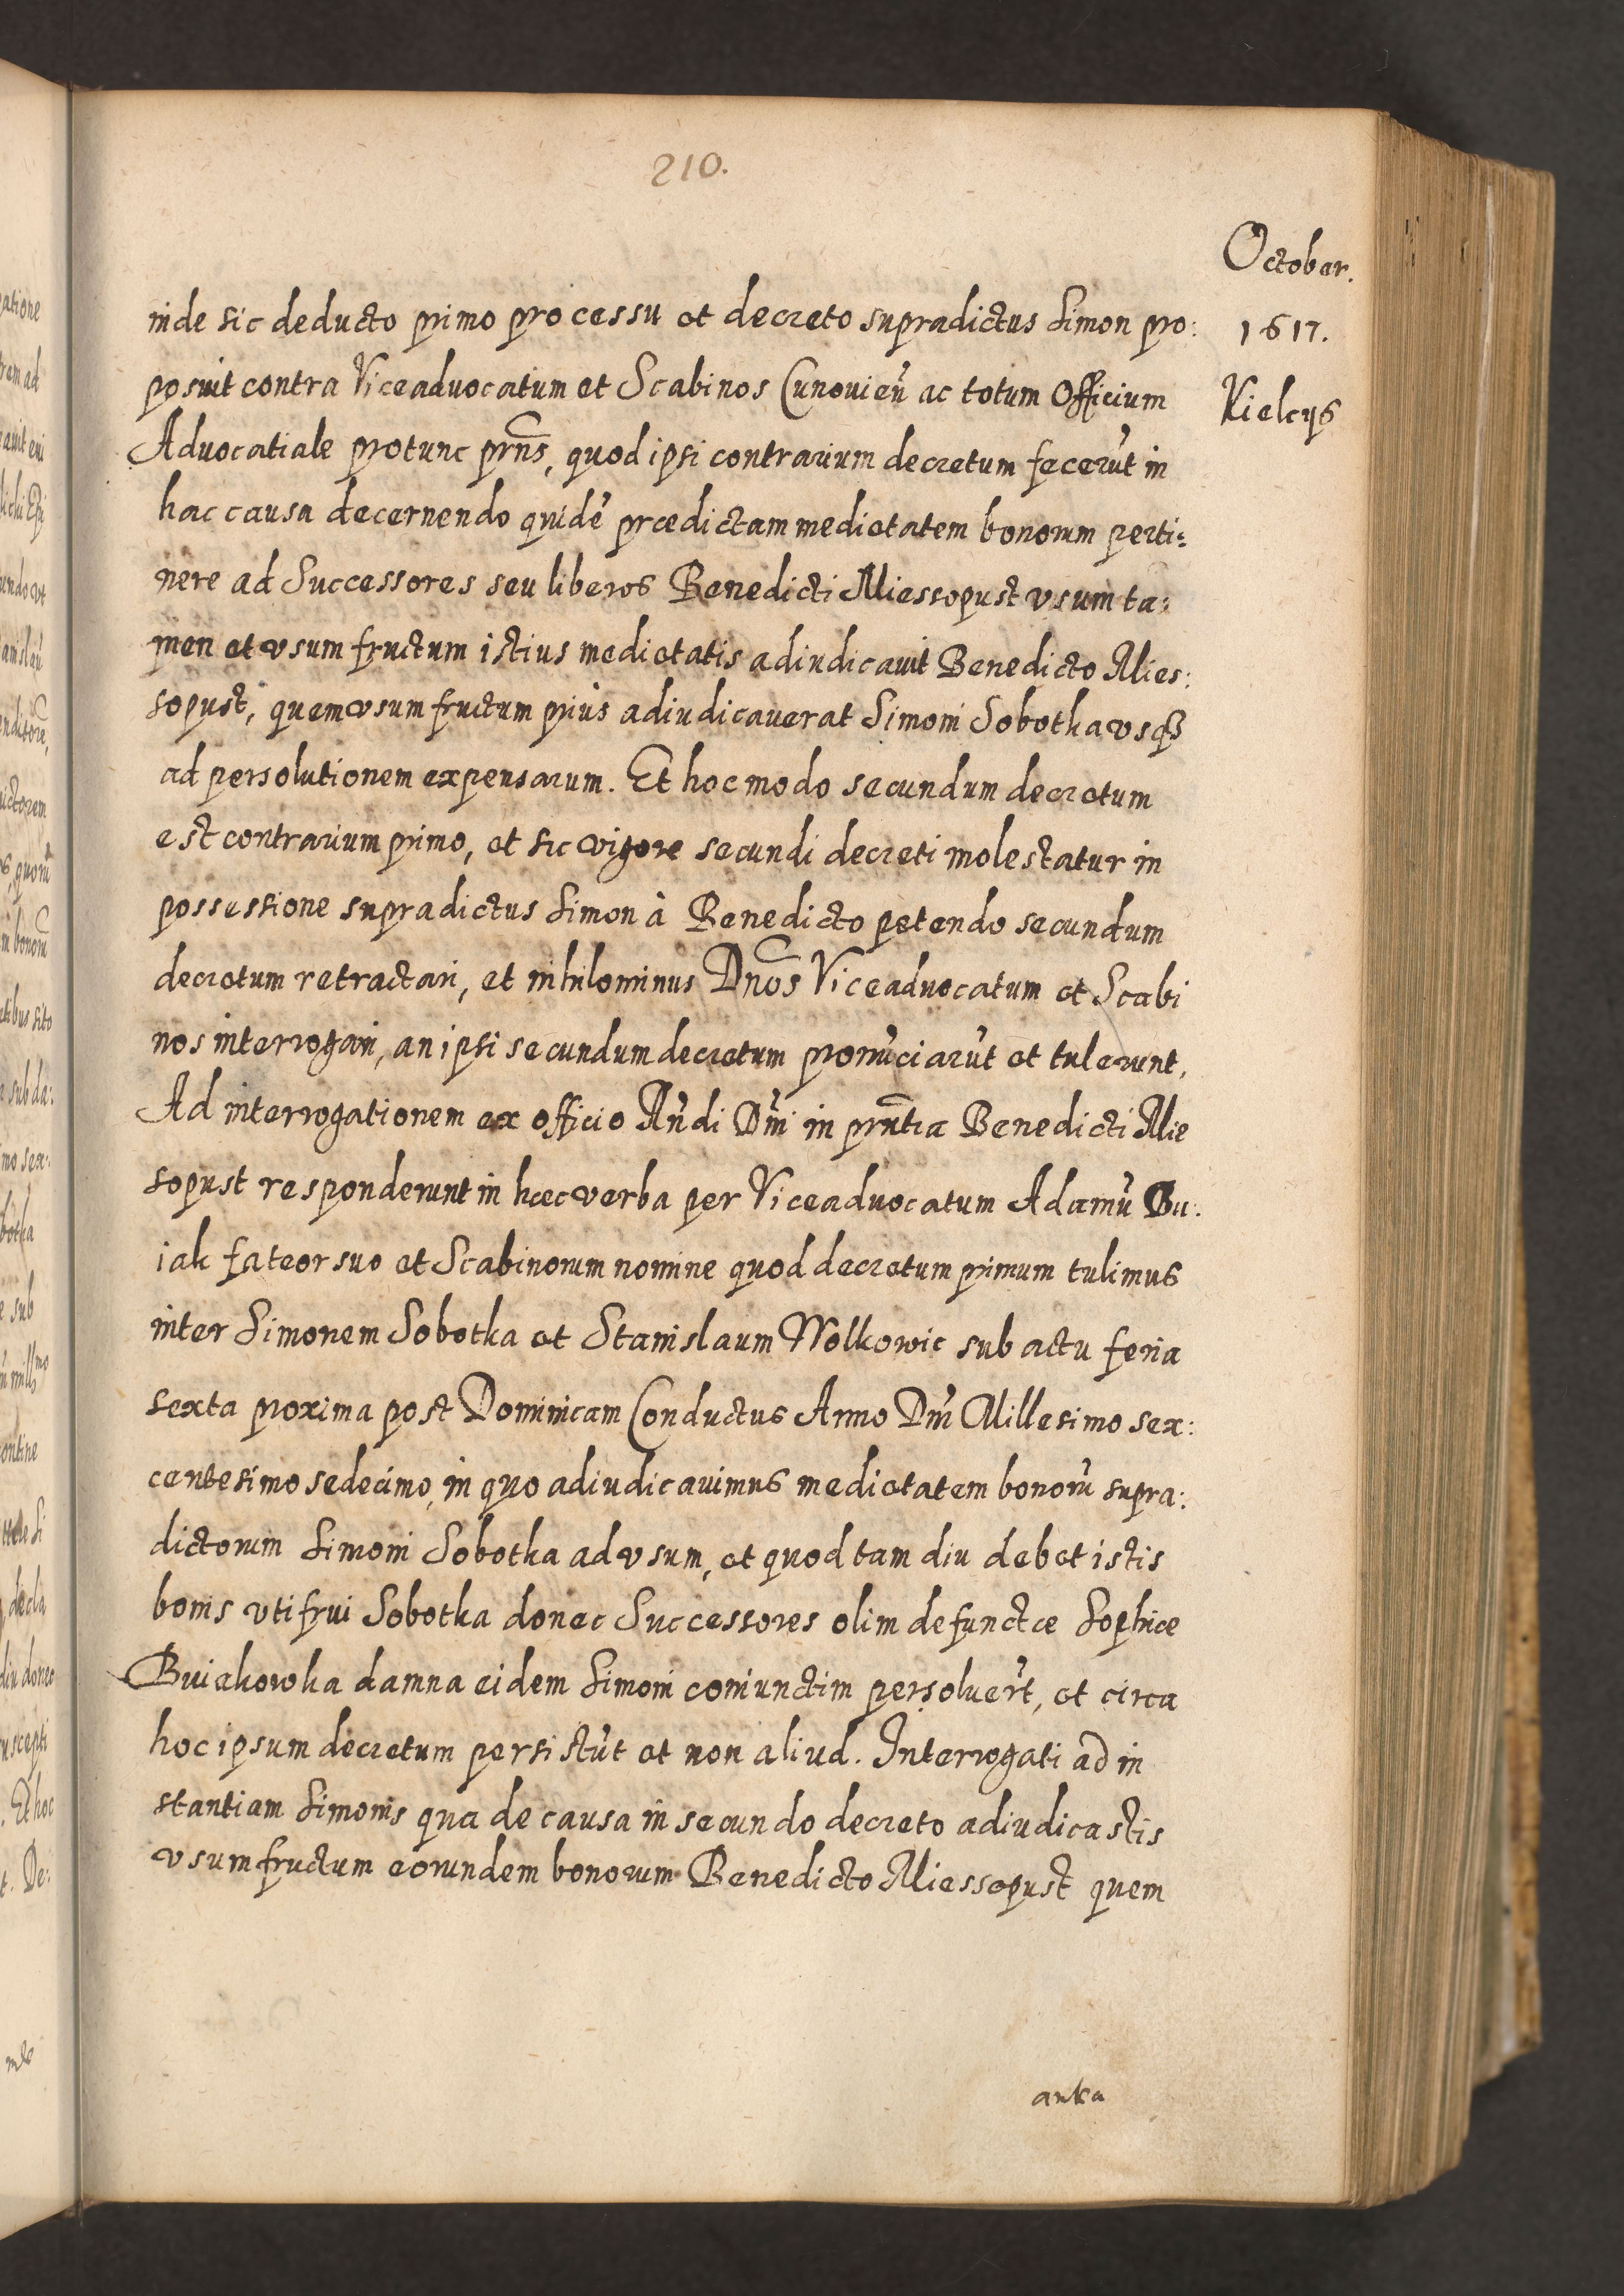 210.
October.
1617.
Kielcys
inde sic deducto primo processu et decreto supradictus Simon pro:
posuit contra Viceadvocatum et Scabinos Cunovien̄ ac totum Officium
Advocatiale protunc prn̄s, quod ipsi contrarium decretum fecerūt in
hac causa decernendo quidē prædictam medietatem bonorum perti:
nere ad Successores seu liberos Benedicti Miessopust vsum ta:
men et vsum fructum istius medietatis adiudicauit Benedicto Mies:
sopust, quem vsum fructum prius adiudicauerat Simoni Sobotka vsqȝ
ad persolutionem expensarum. Et hoc modo secundum decretum
est contrarium primo, et sic vigore secundi decreti molestatur in
possessione supradictus Simon à Benedicto petendo secundum
decretum retractari, et nihilominus Dn̄os Viceadvocatum et Scabi
nos interrogari, an ipsi secundum decretum pronūciarūt et tulerunt.
Ad interrogationem ex officio Rn̄di Dn̄i in prn̄tia Benedicti Mie
sopust responderunt in hæc verba per Viceadvocatum Adamū Bu:
iak fateor suo et Scabinorum nomine quod decretum primum tulimus
inter Simonem Sobotka et Stanislaum Wolkowic sub actu feria
sexta proxima post Dominicam Conductus Anno Dn̄i Millesimo sex:
centesimo sedecimo, in quo adiudicauimus medietatem bonorū supra:
dictorum Simoni Sobotka ad vsum, et quod tam diu debet istis
bonis vti frui Sobotka donec Successores olim defunctæ Sophiæ
Buiakowka damna eidem Simoni coniunctim persoluer̄t, et circa
hoc ipsum decretum persistūt et non aliud. Interrogati ad in
stantiam Simonis qua de causa in secundo decreto adiudicastis
vsumfructum eorundem bonorum Benedicto Miessopust quem
antea